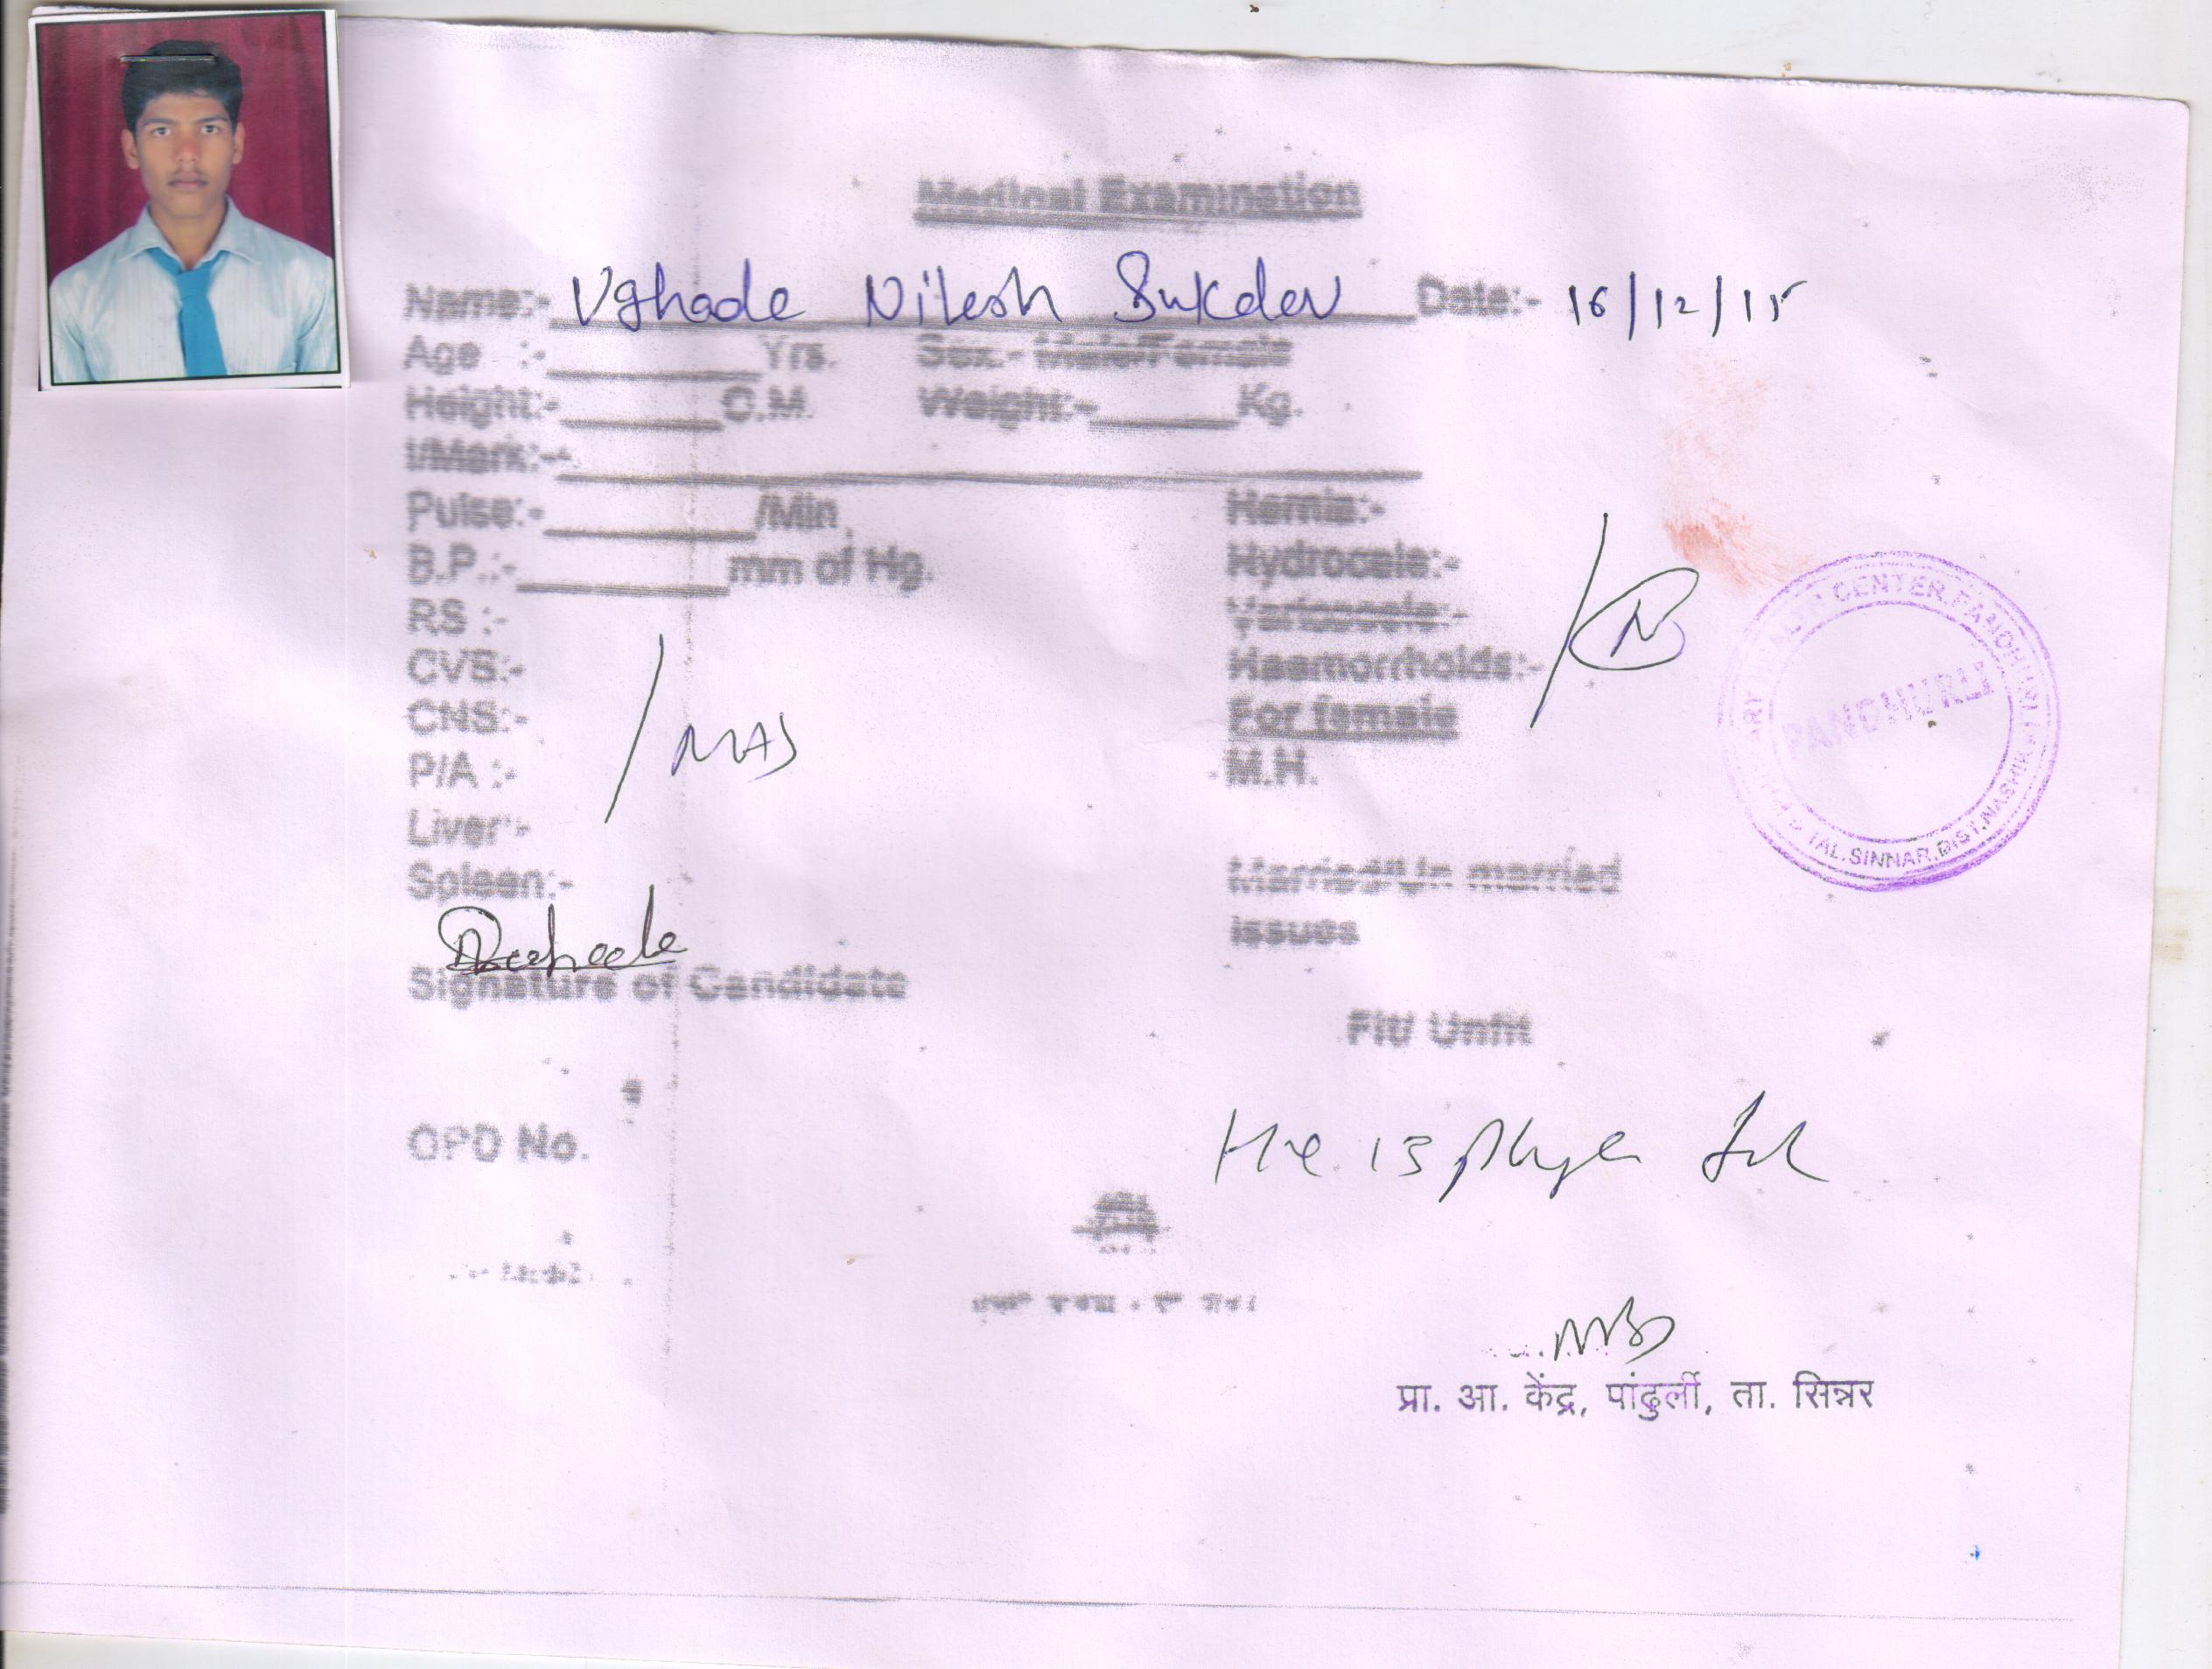 Medical Examination
Name:- Ughade Nilesh Sukdev Date:- 16/12/15
Age :- Yrs. Sex.- Male/Female
Height:- C.M. Weight:- Kg.
I/Mark:-
Pulse:- /Min Hernia:-
B.P.:- mm of Hg. Hydrocele:-
RS :- Varicocele:-
CVS:- Haemorrhoids:-
CNS:- For female
NAD
P/A :- M.H.
Liver:-
Spleen:- Married/Un married
issues
Signature of Candidate
Fit/ Unfit
OPD No.
He is fit
प्रा. आ. केंद्र, पांढुर्ली, ता. सिन्नर
CENTER, PANDHURLI TAL.SINNAR, DIST.NASHIK
PANDHURLI